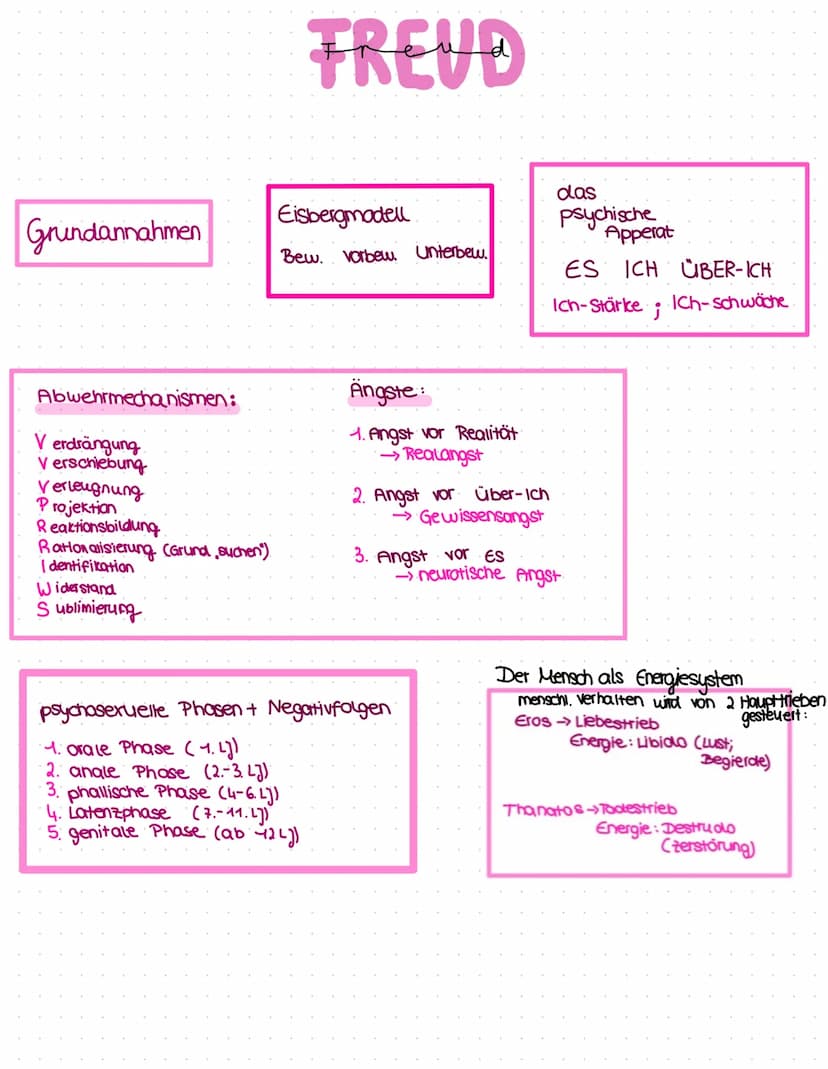 FREUD
Freud
Grundannahmen
Eisbergmodell
Bew. Vorbew. Unterbew.
das
psychische
Apperat
ES ICH ÜBER-ICH
Ich-Stärke ; Ich-schwäche
Abwehrmechanismen:
Verdrängung
Verschiebung
Verleugnung
Projektion
Reaktionsbildung
Rationalisierung (Grund „suchen")
Identifikation
Widerstand
Sublimierung
Ängste:
1. Angst vor Realität
→ Realangst
2. Angst vor Über-Ich
→ Gewissensangst
3. Angst vor ES
→ neurotische Angst
psychosexuelle Phasen + Negativfolgen
1. orale Phase (1. LJ)
2. anale Phase (2.-3. LJ)
3. phallische Phase (4-6. LJ)
4. Latenzphase (7.-11. LJ)
5. genitale Phase (ab 12 LJ)
Der Mensch als Energiesystem
menschl. Verhalten wird von 2 Haupttrieben
gesteuert:
Eros → Liebestrieb
Energie: Libido (Lust;
Begierde)
Thanatos → Todestrieb
Energie: Destrudo
(Zerstörung)